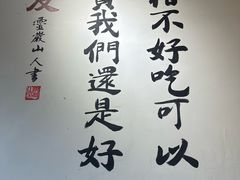 不好吃可以
我們還是好
靈巖山人書